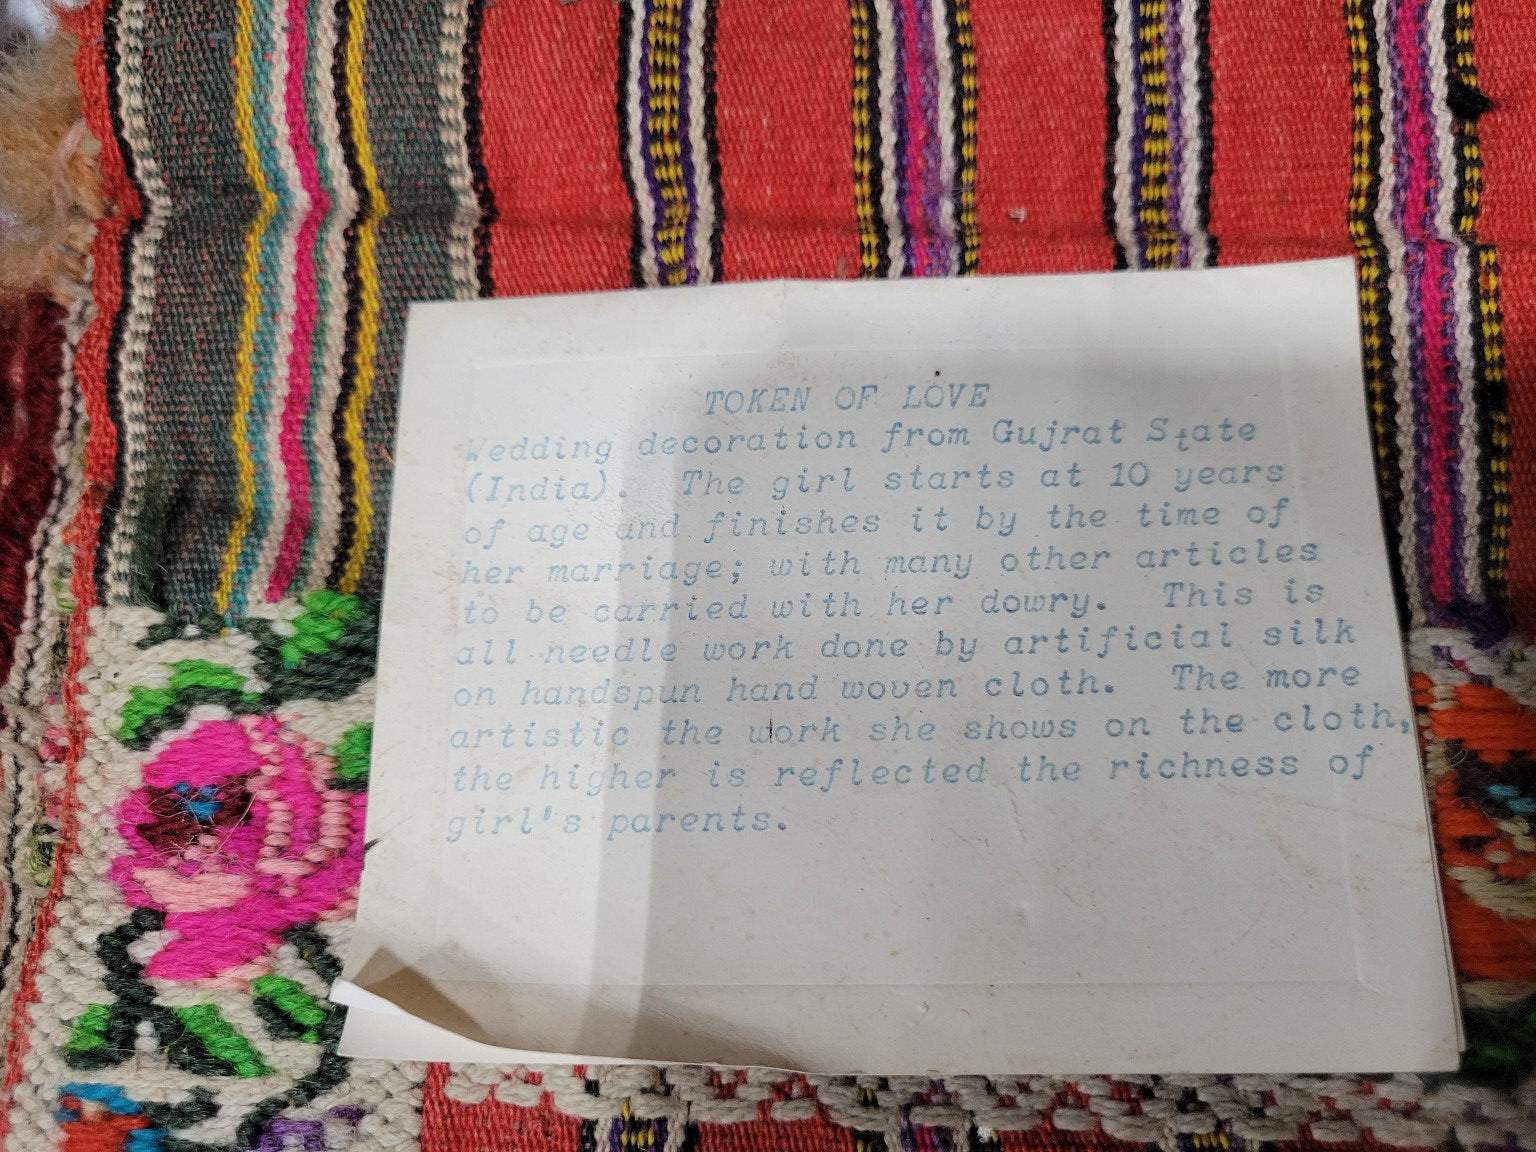 TOKEN OF LOVE
Wedding decoration from Gujrat State
(India). The girl starts at 10 years
of age and finishes it by the time of
her marriage; with many other articles
to be carried with her dowry. This is
all needle work done by artificial silk
on handspun hand woven cloth. The more
artistic the work she shows on the cloth,
the higher is reflected the richness of
girl's parents.